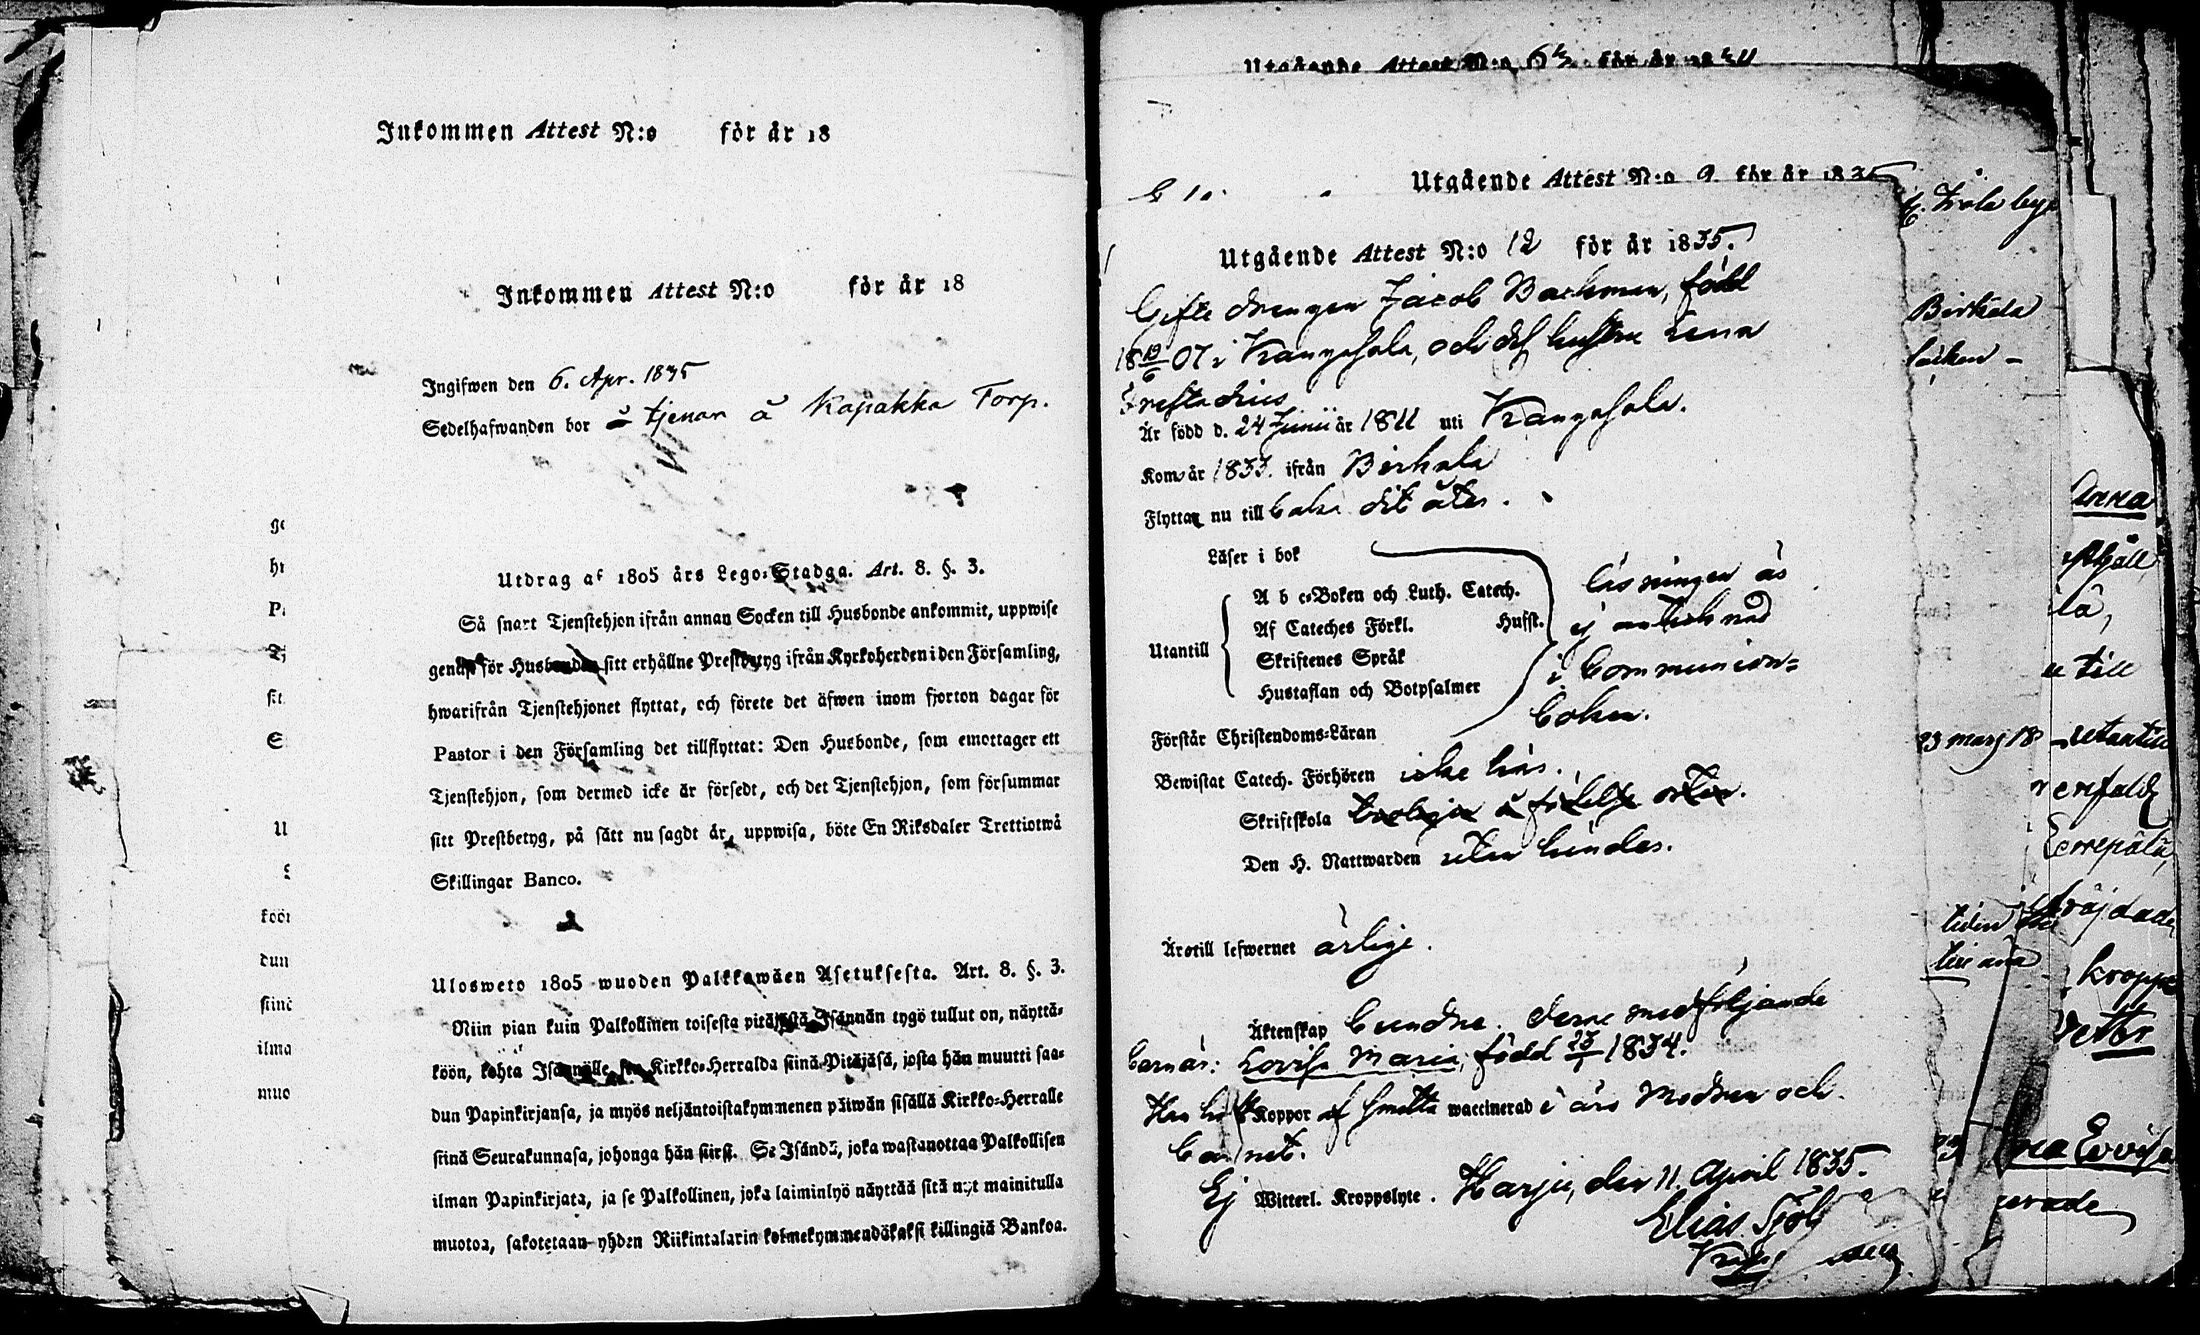 Inkommen Attest N:o för år 18
Inkommen Attest N:o för år 18
Ingifwen den 6. Apr. 1835
Sedelhafwanden bor å tjenar å Kapakka Torp.
Utdrag af 1805 års Lego-Stadga. Art. 8. §. 3.
Så snart Tjenstehjon ifrån annan Socken till Husbonde ankommit, uppwise
genast för Husbonden sitt erhållne Prestbetyg ifrån Kyrkoherden i den Församling,
hwarifrån Tjenstehjonet flyttat, och förete det äfwen inom fjorton dagar för
Pastor i den Församling det tillflyttat: Den Husbonde, som emottager ett
Tjenstehjon, som dermed icke är försedt, och det Tjenstehjon, som försummar
sitt Prestbetyg, på sätt nu sagdt är, uppwisa, böte En Riksdaler Trettiotwå
Skillingar Banco.
Ulosweto 1805 wuoden Palkkawäen Asetuksesta. Art. 8. §. 3.
Niin pian kuin Palkollinen toisesta pitäjästä Isännän tygö tullut on, näyttä-
köön, kohta Isännälle sen Kirkko-Herralda siinä Pitäjäsä, josta hän muutti saa-
dun Papinkirjansa, ja myös neljäntoistakymmenen päiwän sisällä Kirkko-Herralle
siinä Seurakunnasa, johonga hän siirsi. Se Isändä, joka wastanottaa Palkollisen
ilman Papinkirjata, ja se Palkollinen, joka laiminlyö näyttää sitä nyt mainitulla
muotoa, sakotetaan yhden Riikintalarin kolmekymmendäkaksi killingiä Bankoa.
Utgående Attest N:o för år
Utgående Attest N:o 9 för år 1835
Utgående Attest N:o 12 för år 1835.
Gifte drengen Jacob Backman, född
18 19/6 07 i Kangasala, och dess hustru Lena
Är född d. 24 Junii år 1811 uti Kangasala.
Kom år 1833. ifrån Birkala
Flyttar nu till baka dit åter.
Läser i bok
Utantill
A b c-Boken och Luth. Catech.
Af Cateches Förkl. Husst.
Skriftenes Språk
Hustaflan och Botpsalmer
Läsningen är
ej antecknad
i Communion-
boken.
Förstår Christendoms-Läran
Bewistat Catech. Förhören icke här.
Skriftskola
Den H. Nattwarden utan hinder.
Äro till lefwernet ärlige.
Äktenskap bundne. Deras medföljande
barn är: Lovisa Maria, född 23/1 1834.
Har haft Koppor af smitta waccinerad i äro Modren och
barnet.
Ej Witterl. Kroppslyte. Harju, den 11. April 1835.
Elias
Birkala
socken
23 mars 18
Anna
till
utantill
kroppe